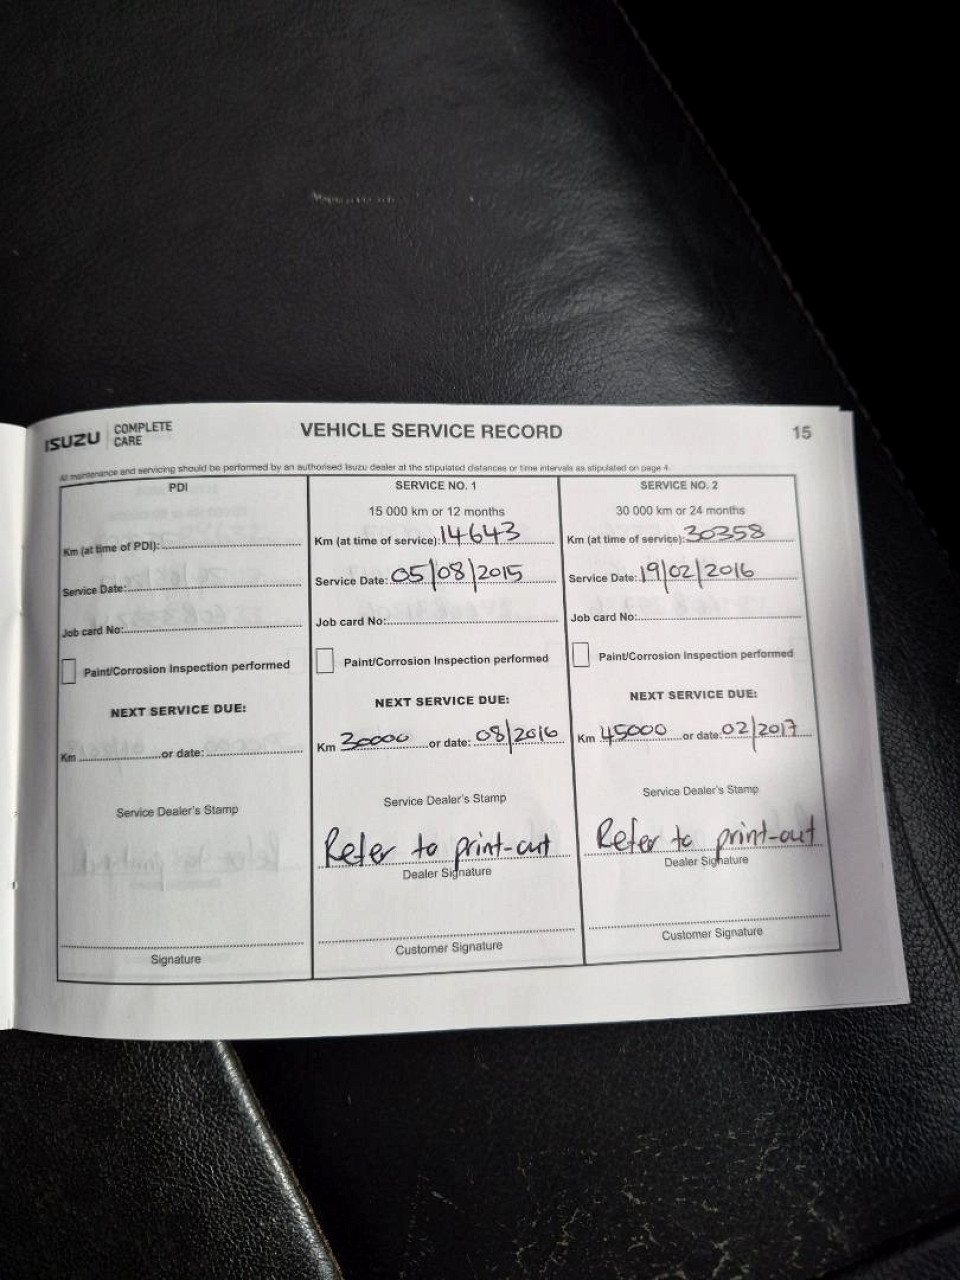 ISUZU COMPLETE CARE
VEHICLE SERVICE RECORD
15
All maintenance and servicing should be performed by an authorised Isuzu dealer at the stipulated distances or time intervals as stipulated on page 4.
PDI
Km (at time of PDI):
Service Date:
Job card No:
Paint/Corrosion Inspection performed
NEXT SERVICE DUE:
Km or date:
Service Dealer's Stamp
Signature
SERVICE NO. 1
15 000 km or 12 months
Km (at time of service): 14643
Service Date: 05/08/2015
Job card No:
Paint/Corrosion Inspection performed
NEXT SERVICE DUE:
Km 30000 or date: 08/2016
Service Dealer's Stamp
Refer to print-out
Dealer Signature
Customer Signature
SERVICE NO. 2
30 000 km or 24 months
Km (at time of service): 30358
Service Date: 19/02/2016
Job card No:
Paint/Corrosion Inspection performed
NEXT SERVICE DUE:
Km 45000 or date: 02/2017
Service Dealer's Stamp
Refer to print-out
Dealer Signature
Customer Signature